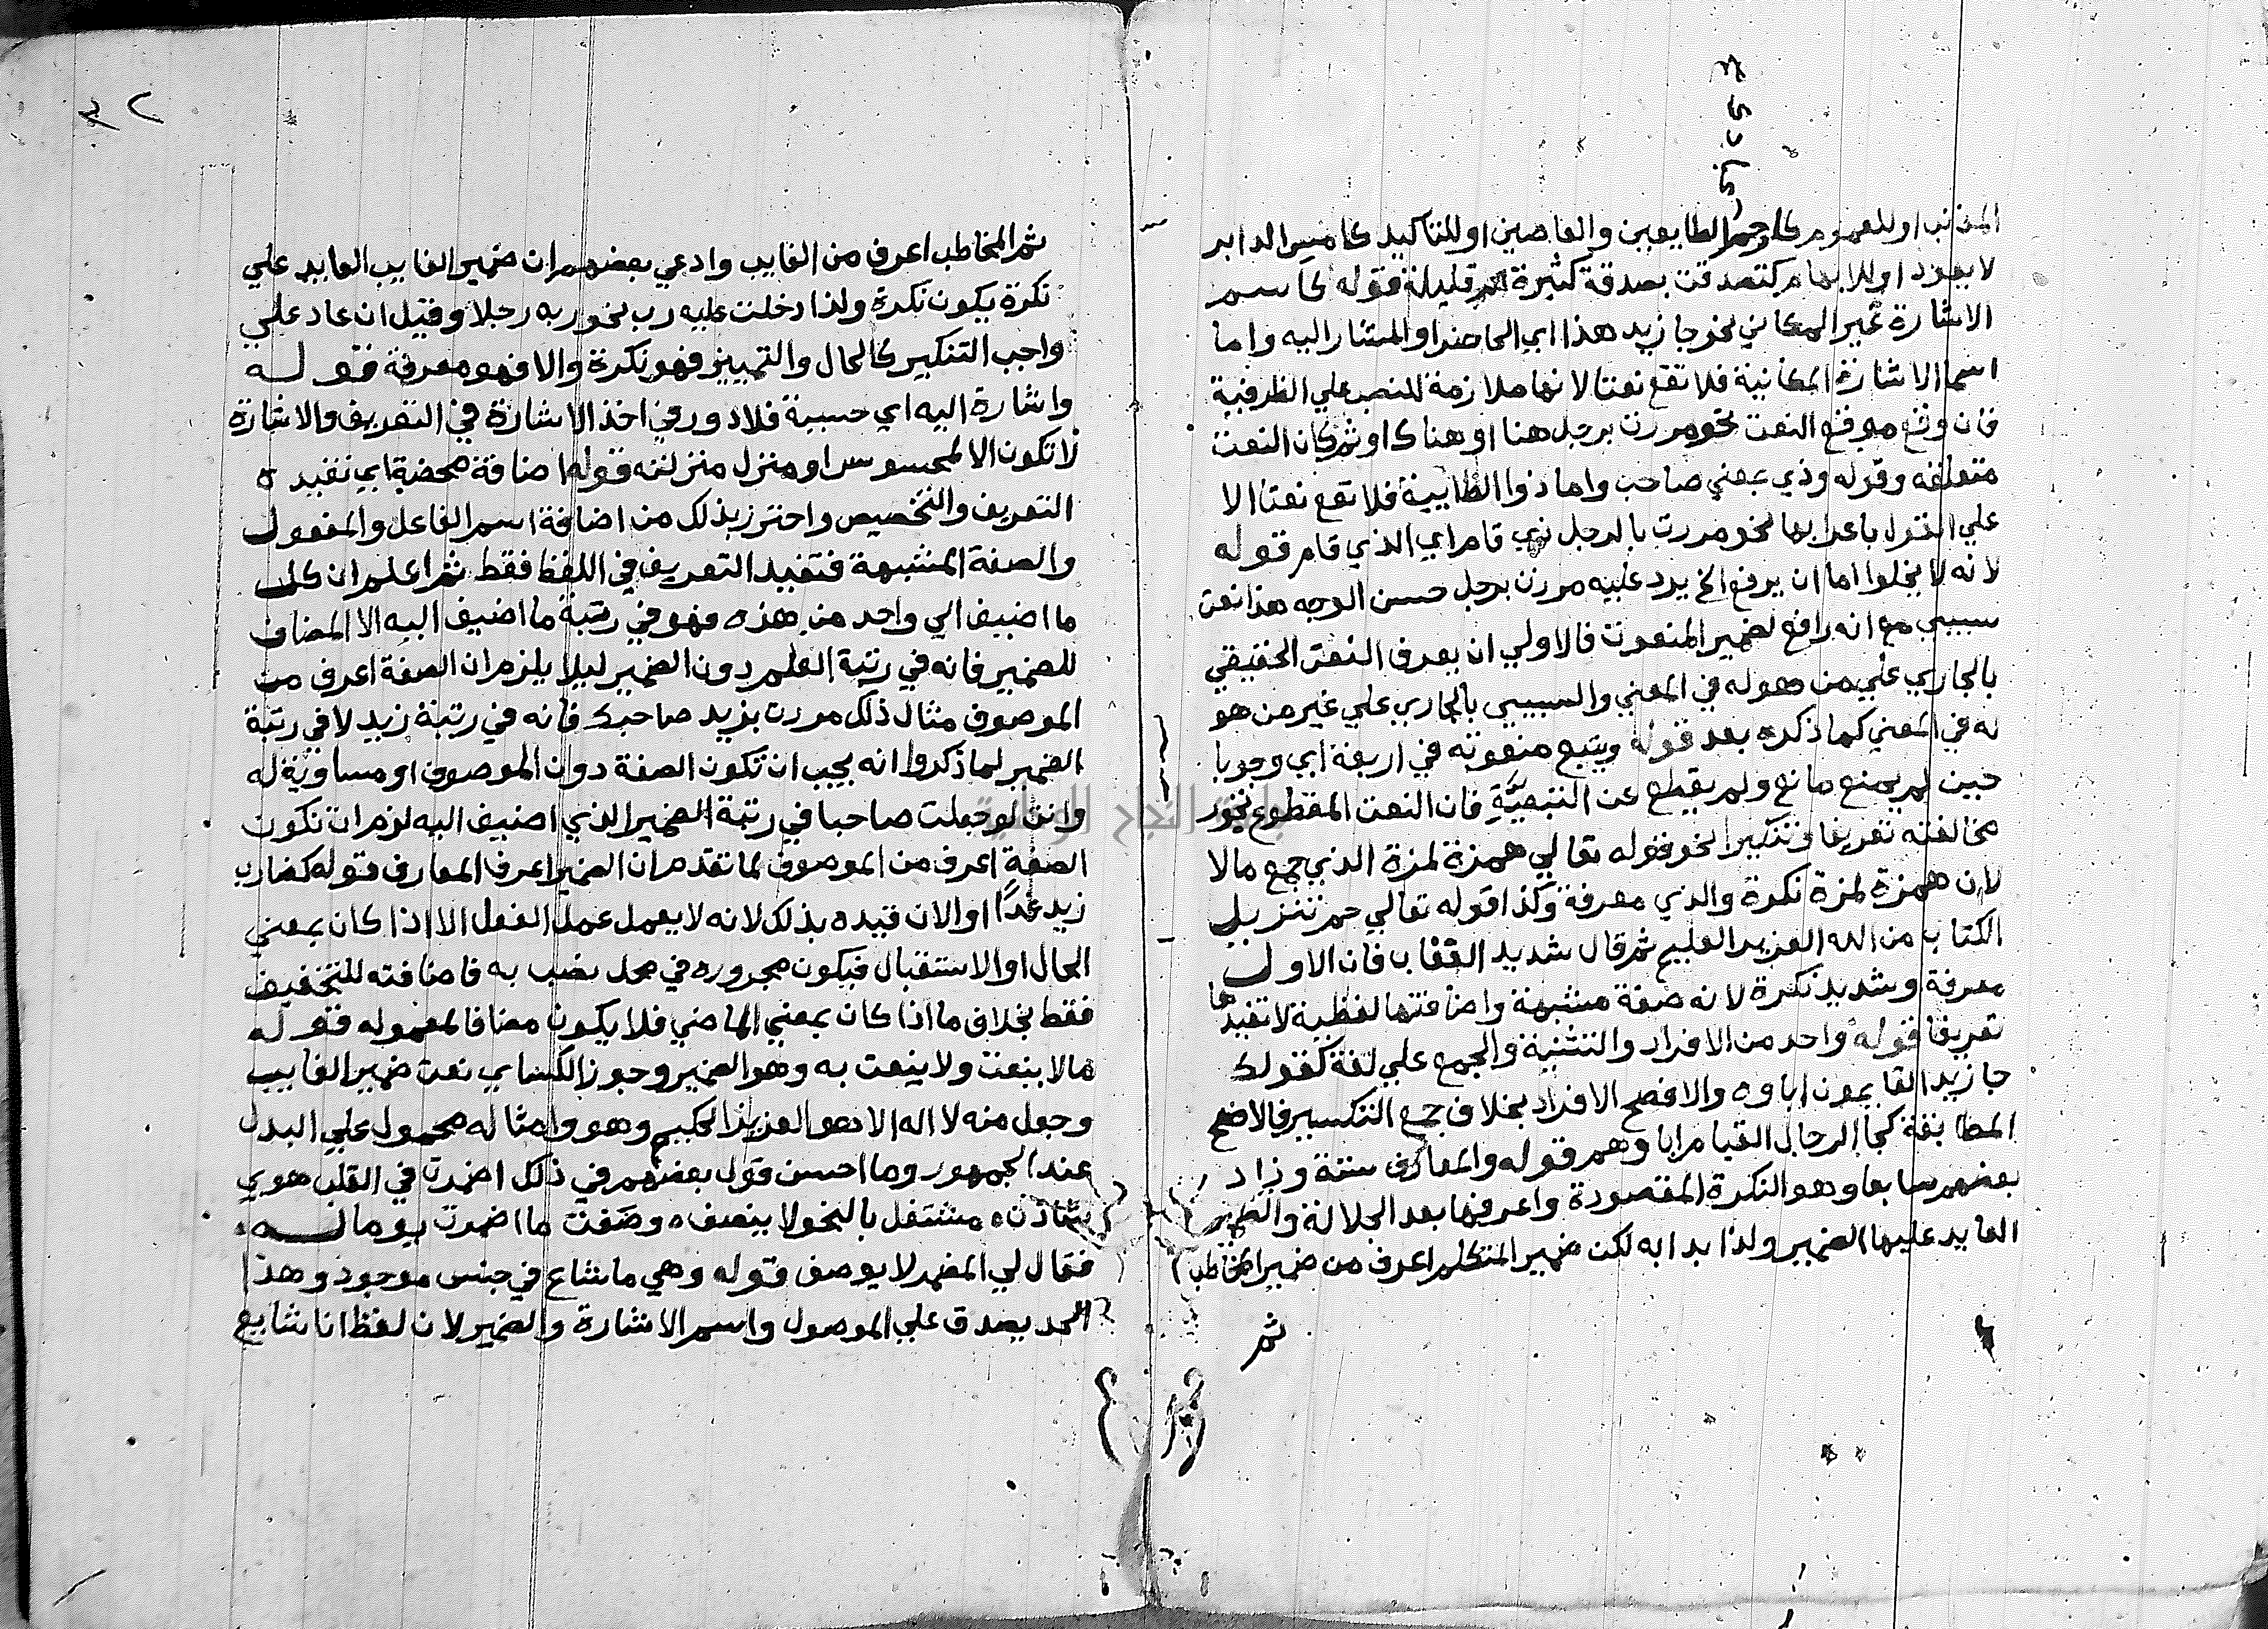 المذنب او للعموم كارحم الطايعين والعاصين او للتاكيد كامس الدابر
لا يعود او للابهام كتصدقت بصدقة كثيرة ام قليلة قوله كاسم
الاشارة غير المكاني نحو جا زيد هذا اي الحاضر او المشار اليه واما
اسما الاشارة المكانية فلا تقع نعتا لانها ملازمة للنصب علي الظرفية
فان وقع موقع النعت نحو مررت برجل هنا او هناك او ثم كان النعت
متعلقه وقوله وذي بمعني صاحب واما ذوا الطايية فلا تقع نعتا الا
علي القول باعرابها نحو مررت بالرجل ذي قام اي الذي قام قوله
لانه لا يخلوا اما ان يرفع الخ يرد عليه مررت برجل حسن الوجه هذا نعت
سببي مع انه رافع لضمير المنعوت فالاولي ان يعرف النعت الحقيقي
بالجاري علي من هوله في المعني والسببي بالجاري علي غير من هو
له في المعني كما ذكره بعد قوله ويتبع منعوته في اربعة اي وجوبا
حيث لم يمنع مانع ولم يقطع عن التبعية فان النعت المقطوع يجوز
مخالفته تعريفا وتنكيرا نحو قوله تعالي همزة لمزة الذي جمع مالا
لان همزة لمزة نكرة والذي معرفة وكذا قوله تعالي حم تنزيل
الكتاب من الله العزيز العليم ثم قال شديد العقاب فان الاول
معرفة وشديد نكرة لانه صفة مشبهة واضافتها لفظية لا تفيدها
تعريفا قوله واحد من الافراد والتثنية والجمع علي لغة كقولك
جا زيد القايمون اباوه والافصح الافراد بخلاف جمع التكسير فالافصح
المطابقة كجا الرجال القيام اباوهم قوله والمعارف ستة وزاد
بعضهم سابعا وهو النكرة المقصودة واعرفها بعد الجلالة والضمير
العايد عليها الضمير ولذا بدا به لكن ضمير المتكلم اعرف من ضمير المخاطب
ثم
٣٢
ثم المخاطب اعرف من الغايب وادعي بعضهم ان ضمير الغايب العايد علي
نكرة يكون نكرة ولذا دخلت عليه رب نحو ربه رجلا وقيل ان عاد علي
واجب التنكير كالحال والتمييز فهو نكرة والا فهو معرفة قوله
واشارة اليه اي حسية فلا دور في اخذ الاشارة في التعريف والاشارة
لا تكون الا لمحسوس او منزل منزلته قوله اضافة محضة اي تفيده
التعريف والتخصيص واحترز بذلك من اضافة اسم الفاعل والمفعول
والصفة المشبهة فتفيد التعريف في اللفظ فقط ثم اعلم ان كل
ما اضيف الي واحد من هذه فهو في رتبة ما اضيف اليه الا المضاف
للضمير فانه في رتبة العلم دون الضمير ليلا يلزم ان الصفة اعرف من
الموصوف مثال ذلك مررت بزيد صاحبك فانه في رتبة زيد لا في رتبة
الضمير لما ذكروا انه يجب ان تكون الصفة دون الموصوف او مساوية له
وانت لو جعلت صاحبا في رتبة الضمير الذي اضيف اليه لزم ان تكون
الصفة اعرف من الموصوف لما تقدم ان الضمير اعرف المعارف قوله كضارب
زيد غدا او الان قيده بذلك لانه لا يعمل عمل الفعل الا اذا كان بمعني
الحال او الاستقبال فيكون مجروره في محل نصب به فاضافته للتخفيف
فقط بخلاف ما اذا كان بمعني الماضي فلا يكون مضافا لمعموله قوله
مالا ينعت ولا ينعت به وهو الضمير وجوز الكساي نعت ضمير الغايب
وجعل منه لا اله الا هو العزيز الحكيم وهو وامثاله محمول علي البدل
عند الجمهور وما احسن قول بعضهم في ذلك اضمرت في القلب هوي
شادن مشتغل بالنحو لا ينصف وصفت ما اضمرت يوما له
فقال لي المضمر لا يوصف قوله وهي ما شاع في جنس موجود وهذا
الحد يصدق علي الموصول واسم الاشارة والضمير لان لفظ انا شايع